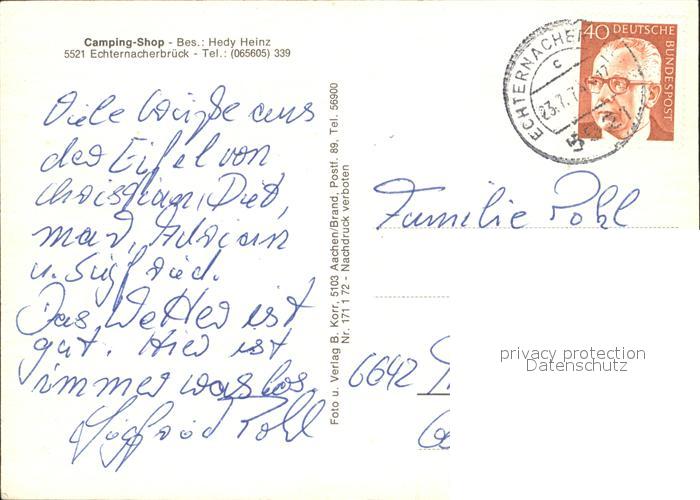 Camping-Shop - Bes.: Hedy Heinz
5521 Echternacherbrück - Tel.: (065605) 339
Viele Grüße aus
der Eifel von
Christian, Diet,
mar, Adrian
u. Siegfried.
Das Wetter ist
gut. Hier ist
immer was los.
Siegfried Pohl
Foto u. Verlag B. Korr, 5103 Aachen/Brand, Postf. 89, Tel. 56900
Nr. 171 1 72 - Nachdruck verboten
40 DEUTSCHE
BUNDESPOST
ECHTERNACHER
c
23.7.7
Familie Pohl
6642
privacy protection
Datenschutz